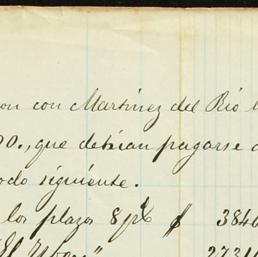 con Martinez del Rio
00., que debian pagarse
odo siguiente.
los plazos 8 p% $ 3840
2731